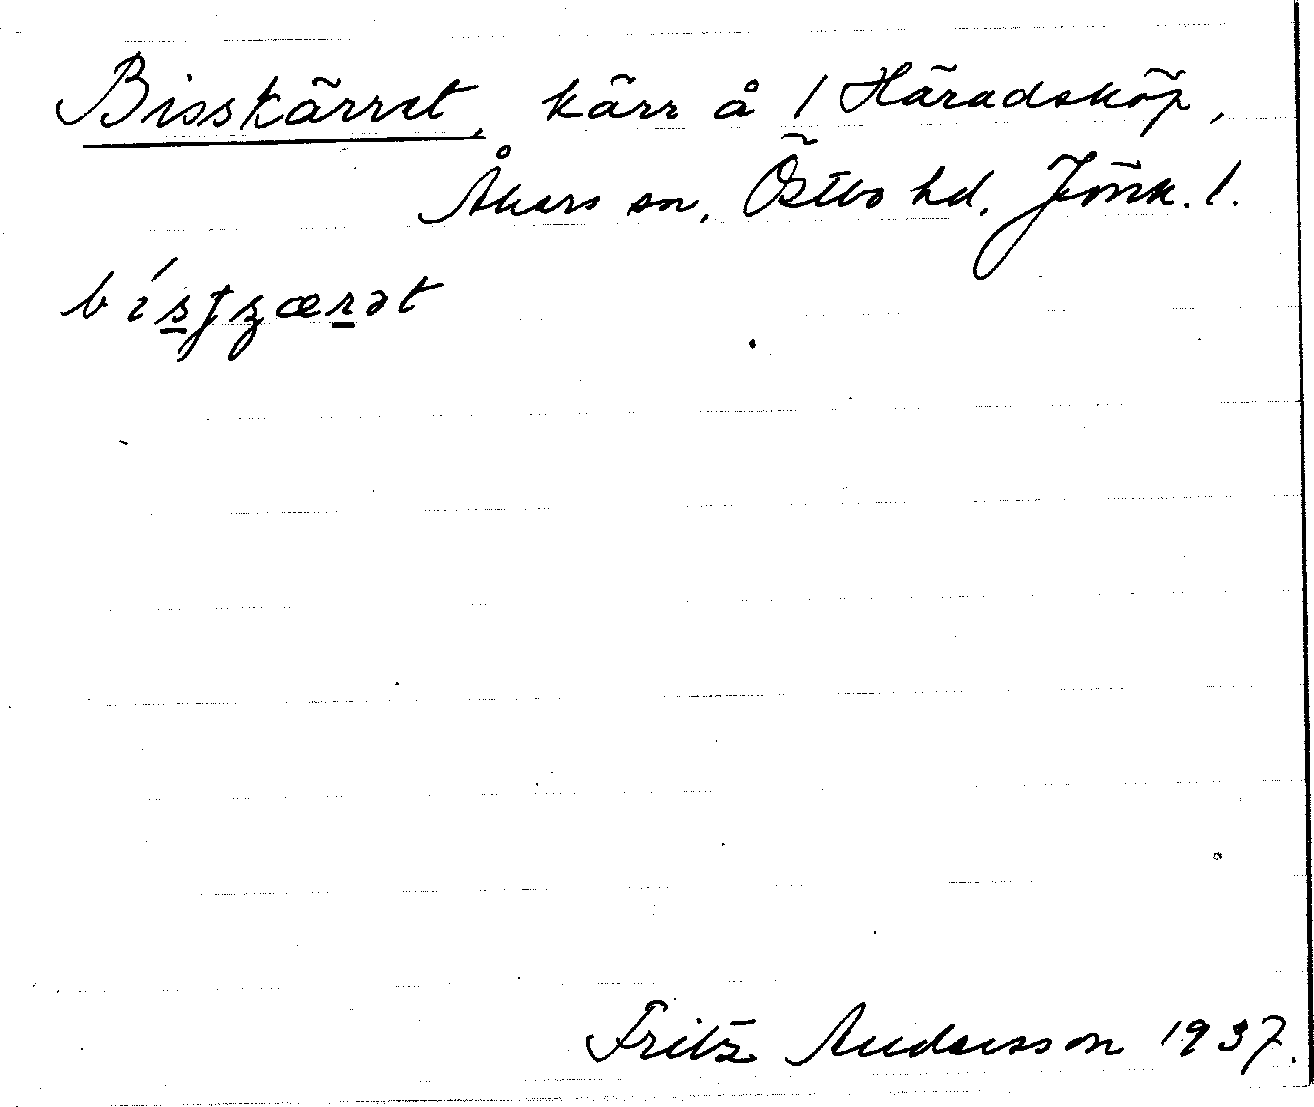 Bisskärret, kärr å 1 Häradsköp,
Åkers sn, Östbo hd. Jönk. l.
Fritz Andersson 1937.